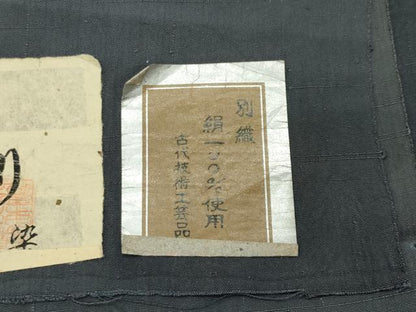 別織
絹一〇〇%使用
古代技術工芸品
染